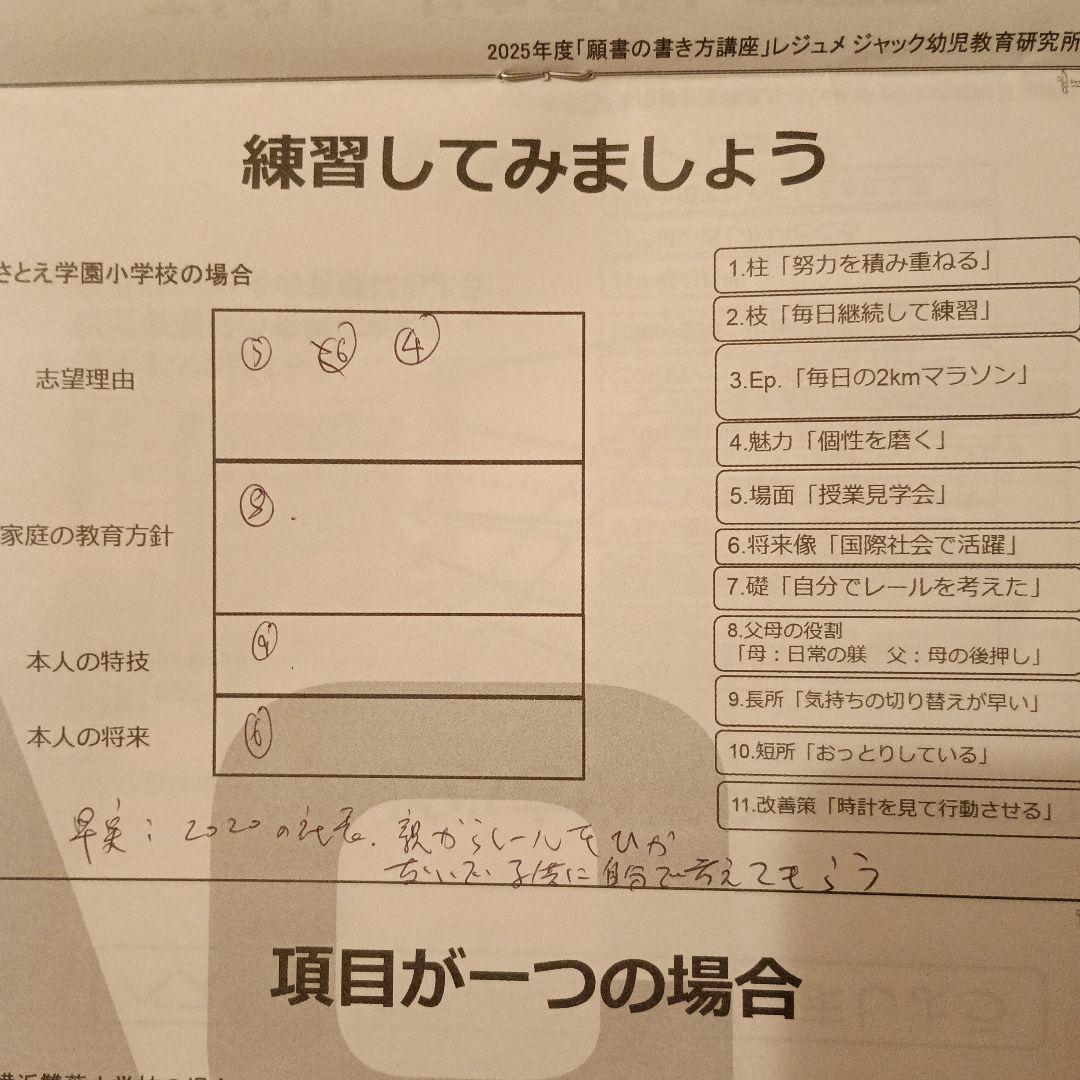 2025年度「願書の書き方講座」レジュメ ジャック幼児教育研究所
練習してみましょう
さとえ学園小学校の場合
志望理由
⑤ ⑥ ④
家庭の教育方針
⑧
本人の特技
⑨
本人の将来
⑥
1.柱「努力を積み重ねる」
2.枝「毎日継続して練習」
3.Ep.「毎日の2kmマラソン」
4.魅力「個性を磨く」
5.場面「授業見学会」
6.将来像「国際社会で活躍」
7.礎「自分でレールを考えた」
8.父母の役割
「母：日常の躾 父：母の後押し」
9.長所「気持ちの切り替えが早い」
10.短所「おっとりしている」
11.改善策「時計を見て行動させる」
早実：2020の 親からレールをひか
ないで子供に自分で考えてもらう
項目が一つの場合